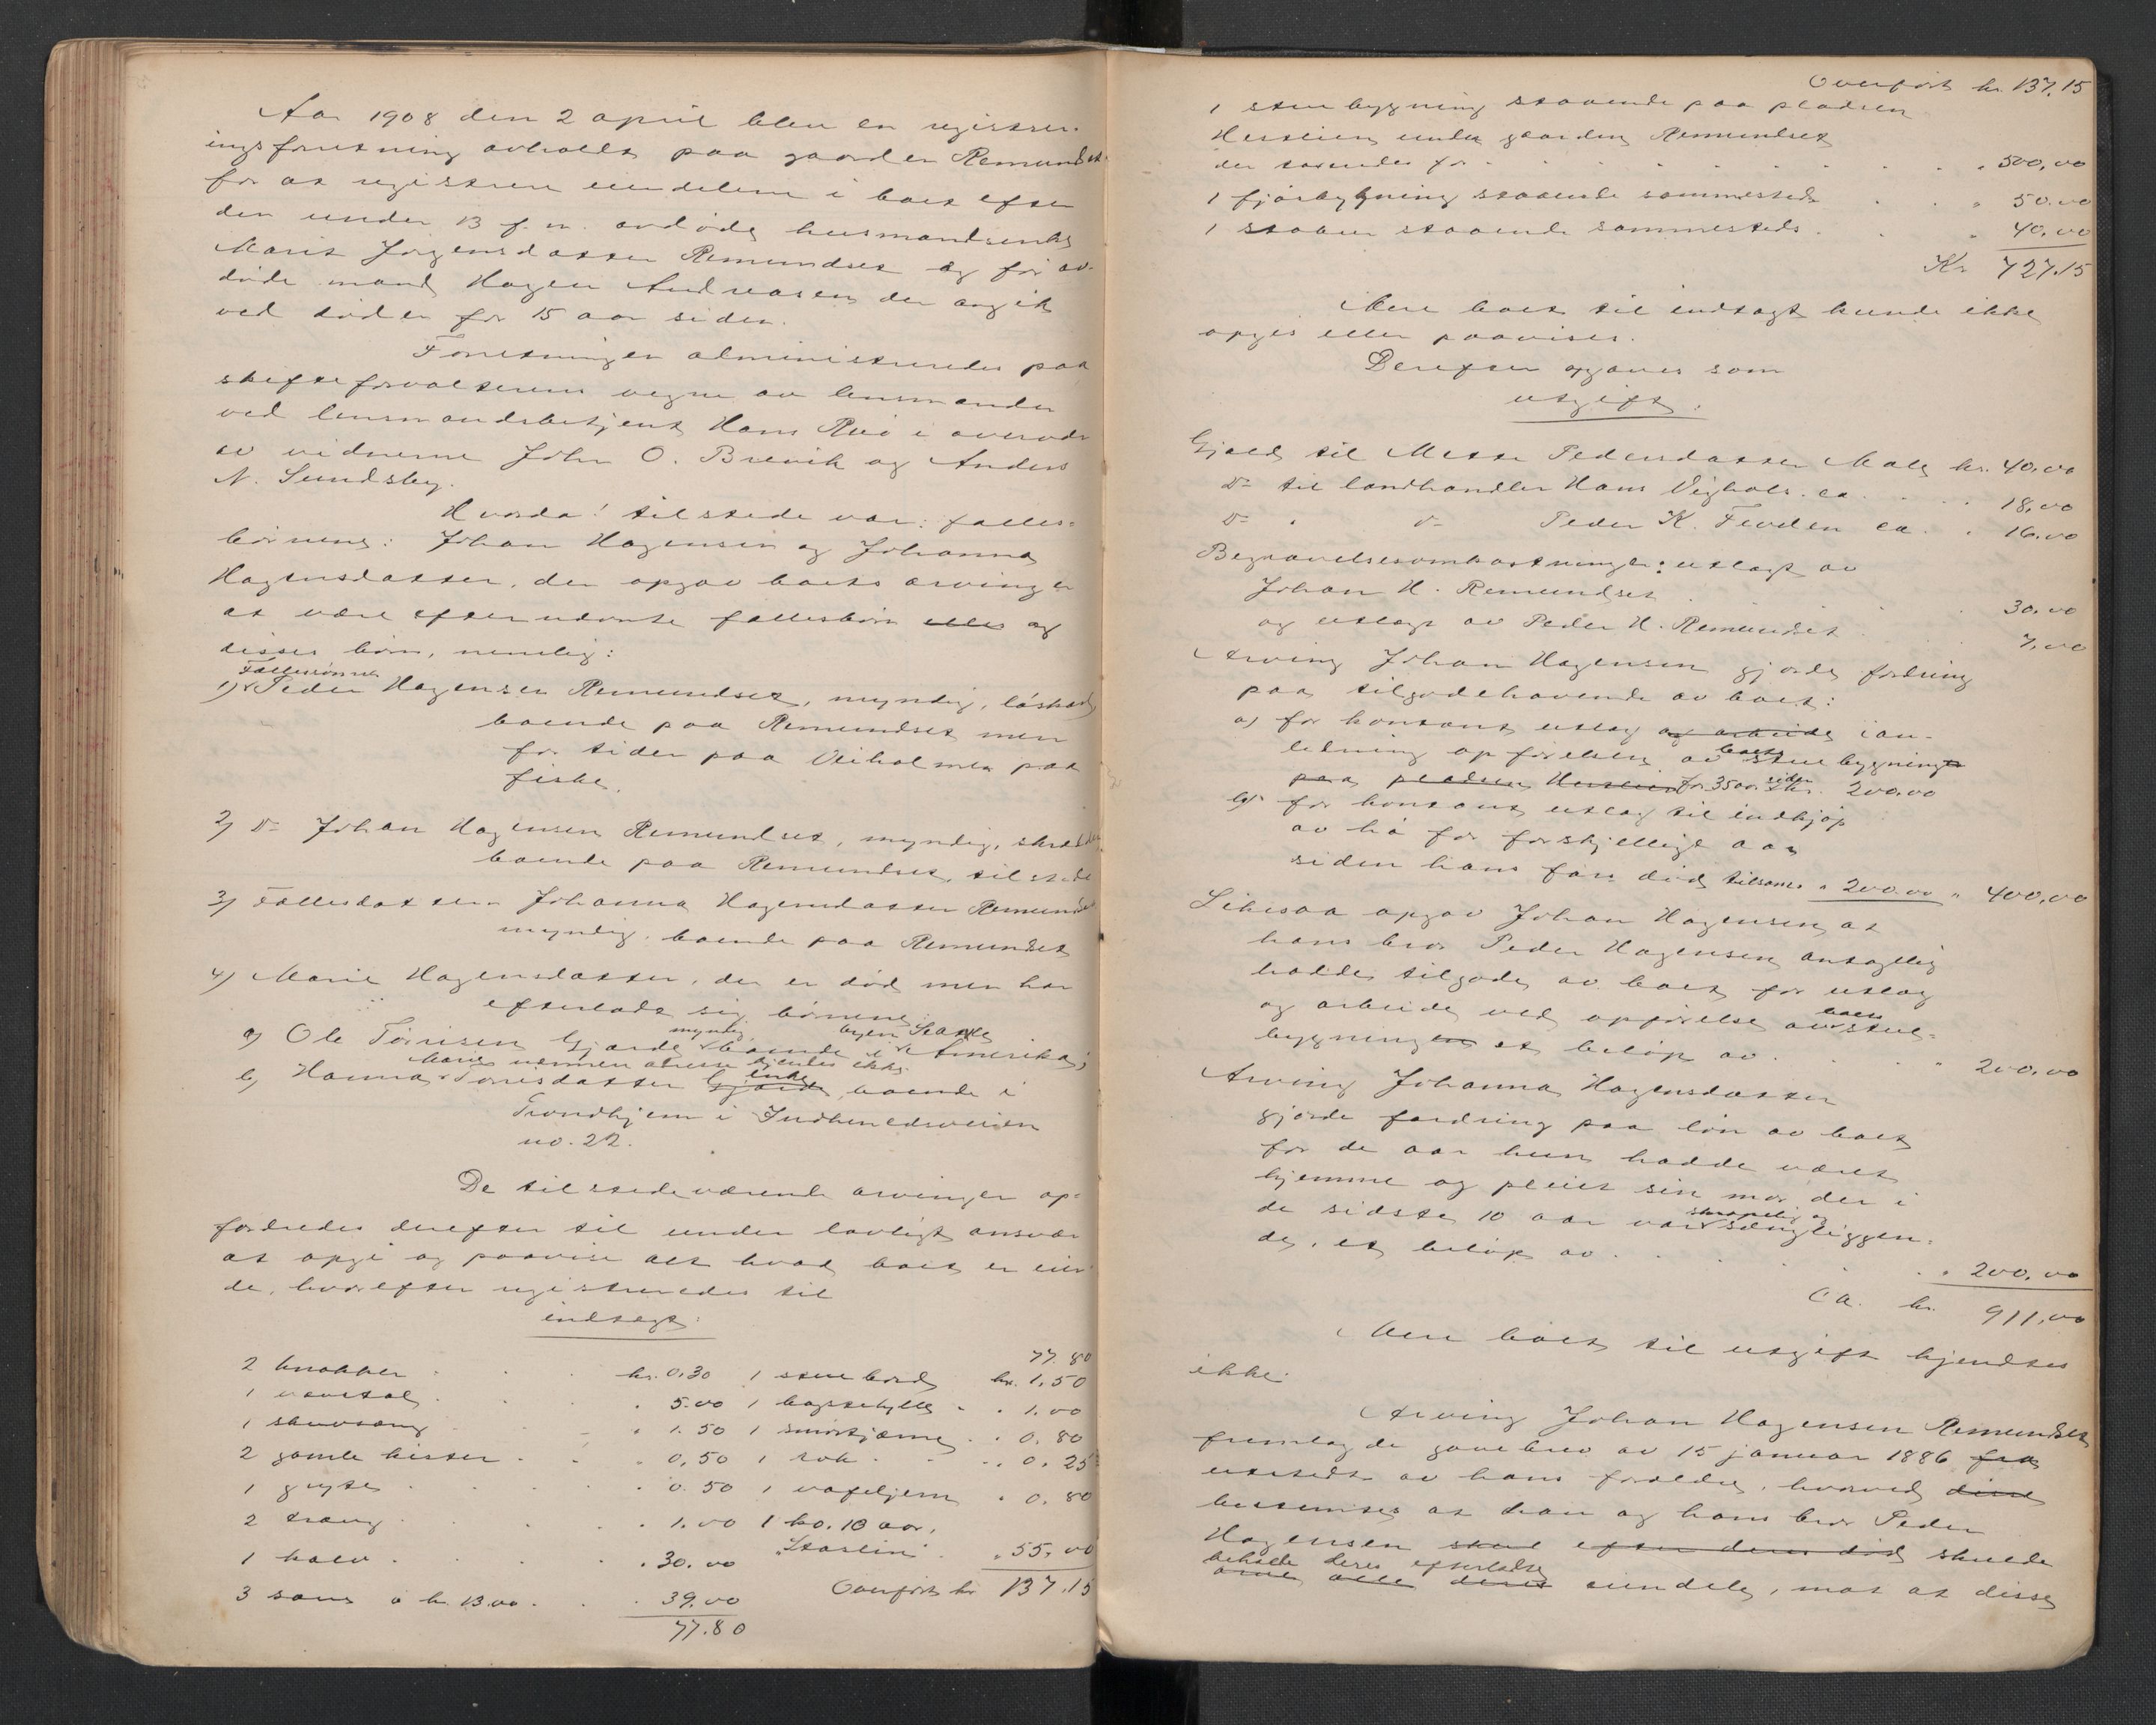 Aar 1908 den 2 april blev en registrer-
ingsforretning avholdt paa gaarden Remundset
for at registrere eiendelene i boet efter
den under 13 f. m. avdøde husmandsenke
Marit Jørgensdatter Remundset og før av-
døde mand Hagen Andreasen der avgik
ved døden for 15 aar siden.
Forretningen administreredes paa
skifteforvalterens vegne av lensmanden
ved lensmandsbetjent Hans Røe i overvær
av vidnerne John O. Brevik og Anders
N. Sundsby.
Hvorda! tilstede var: fælles-
børnene: Johan Hagensen og Johanna
Hagensdatter, der opgav boets arvinger
at være efternævnte fællesbørn eller og
disses børn, nemlig:
Fællessønnen
1) Peder Hagensen Remundset, myndig, løskarl
boende paa Remundset men
for tiden paa Veiholmen paa
fiske.
2) D= Johan Hagensen Remundset, myndig, skrædder
boende paa Remundset, tilstede
3) Fællesdatteren Johanna Hagensdatter Remundset
myndig, boende paa Remundset
4) Marie Hagensdatter, der er død men har
efterladt sig børnene
myndig byen Seatle
a) Ole Tørrisen Gjærde boende i Amerika;
nærmere adresse kjendes ikke.
enke
b) Hanna Marie Tørrisdatter Gjærde, boende i
Trondhjem i Indherredsveien
no. 22.
De tilstedeværende arvinger op-
fordredes derefter til under lovligt ansvar
at opgi og paavise alt hvad boet er eien-
de, hvorefter registreredes til
indtægt:
77.80
2 knakker kr. 0.30 1 stuebord kr. 1.50
1 vævstol 5.00 1 bagstehylle 1.00
1 skuvsæng 1.50 1 smørkjærne 0.80
2 gamle kister 0.50 1 rok 0.25
1 gryte 0.50 1 vafeljern 0.80
2 traug 1.00 1 ko. 10 aar,
1 kalv 30.00 "Staslin" 55.00
3 sauer à kr. 13.00 39.00 Overført kr 137.15
77.80
Overført kr. 137.15
1 stuebygning staaende paa pladsen
Hesteien under gaarden Remundset
der takseredes for 500,00
1 fjøsbygning staaende sammesteds 50.00
1 stabur staaende sammesteds 40.00
Kr 727.15
Mere boet til indtægt kunde ikke
opgis eller paavises.
Derefter opgaves som
utgift:
Gjæld til Mette Pedersdatter Male kr. 40.00
D= til landhandler Hans Vighals ca 18,00
D= " D= Peder K. Fevolden ca 16.00
Begravelsesomkostninger: utlagt av
Johan H. Remundset 30.00
og utlagt av Peder H. Remundset 7.00
Arving Johan Hagensen gjorde fordring
paa tilgodehavende av boet:
a) for kontant utlæg og arbeide i an-
ledning opførelsen av boets stuebygning
paa pladsen Hesteien for 35 aar siden kr. 200.00
b) for kontant utlæg til indkjøp
av hø for forskjellige aar
siden hans fars død tilsammen " 200.00 " 400,00
Likesaa opgav Johan Hagensen at
hans bror Peder Hagensen antagelig
hadde tilgode av boet for utlæg
og arbeide ved opførelse av boets stue-
bygningen et beløp av 200.00
Arving Johanna Hagensdatter
gjorde fordring paa løn av boet
for de aar hun hadde været
hjemme og pleiet sin mor, der i
de sidste 10 aar var skrøpelig og sengeliggen-
de, et beløp av 200.00
Ca. kr. 911,00
Mere boet til utgift kjendtes
ikke.
Arving Johan Hagensen Remundset
fremlagde gavebrev av 15 januar 1886 fra
utstedt av hans forældre, hvorved disse
bestemtes at han og hans bror Peder
Hagensen skal efter deres død skulde
beholde deres efterladte
arve alle deres eiendele, mot at disse